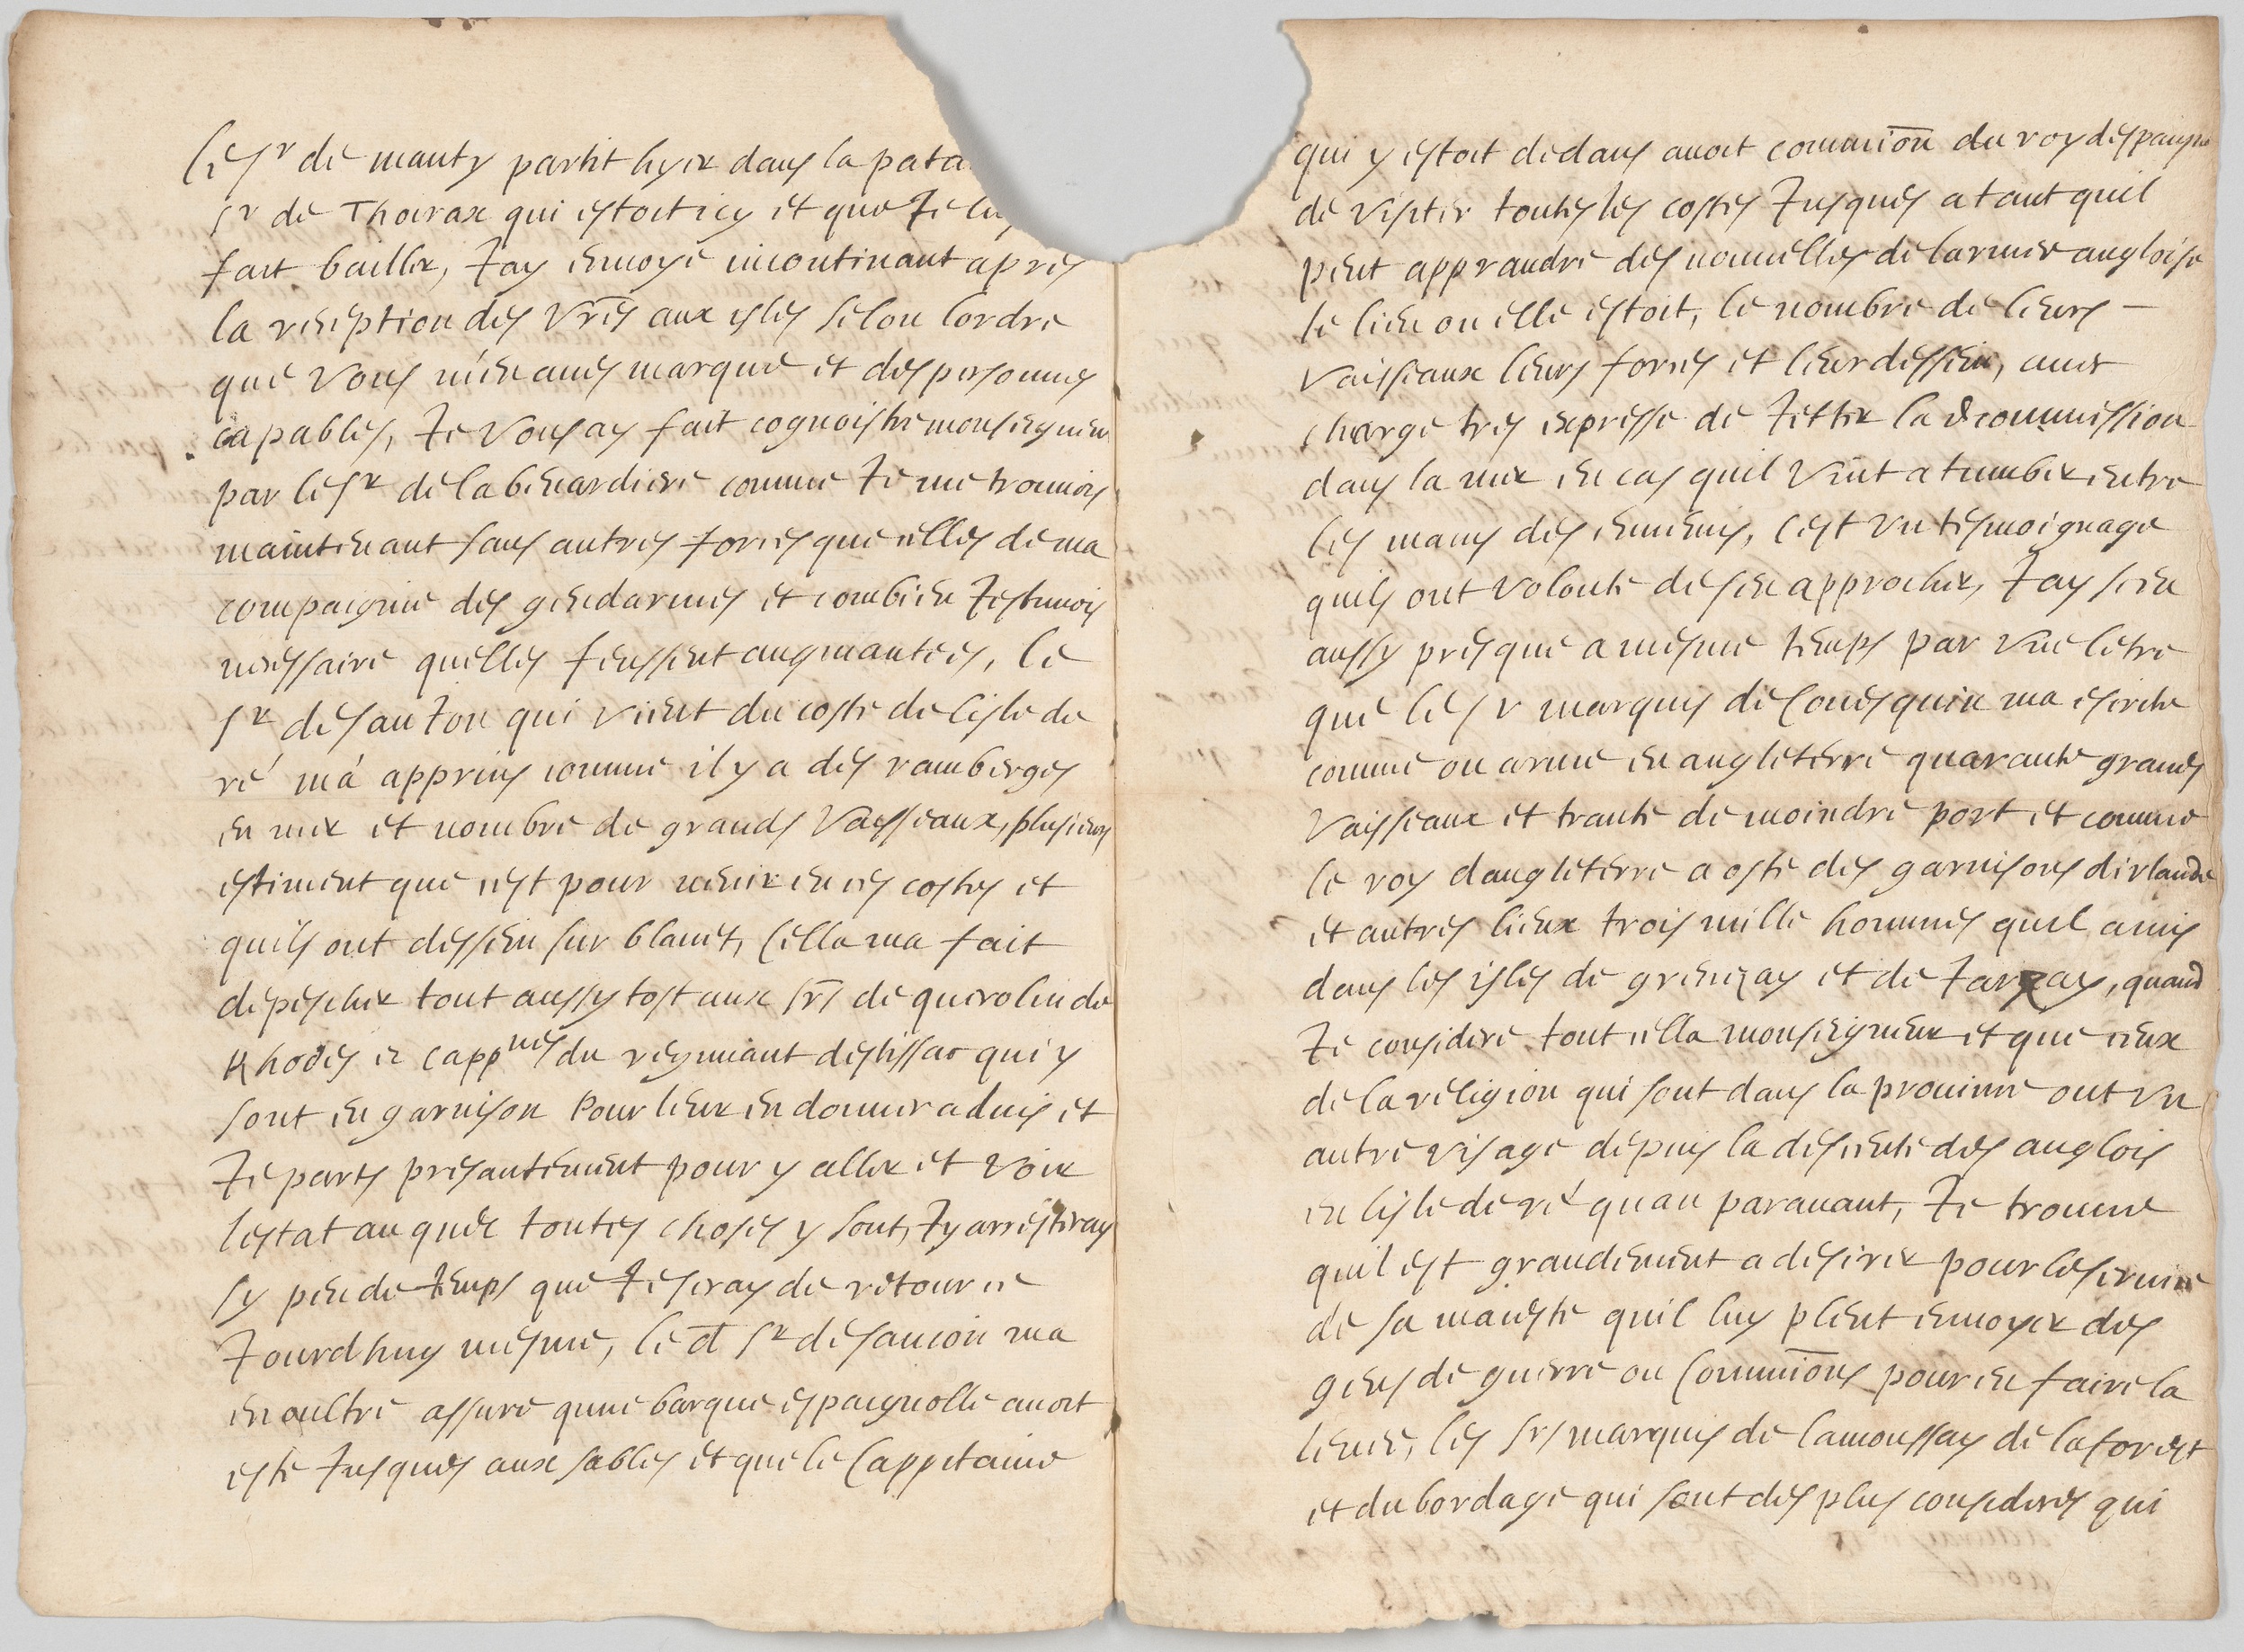 Le sr de manty partit hyer dans la pata
sr de Thoirax qui estoit icy et que Je luy
fait bailler, Jay envoye incontinant apres
la reception des vres aux isles selon lordre
que vous m'en aves marque et des personnes
capables, Je vous ay fait cognoistre monseigneur
par le sr de la benardiere comme Je me trouvois
maintenant sans autres forces que celles de ma
compaignie des gendarmes et combien Jestimois
necessaire quelles feussent augmantees, le
sr de sanzon qui vient du coste de lisle de
ré m'a apprins comme il y a des ramberges
en mer et nombre de grands vaisseaux, plusieurs
estiment que cest pour venir en ces costes et
quils ont dessein sur blavet, cella ma fait
depescher tout aussy tost aux srs de querolin de
Rhodes et cappnes du regimant destissac qui y
sont en garnison pour leur en donner advis et
Je parts presantement pour y aller et voir
lestat au quel toutes choses y sont, Jy arresteray
sy peu de temps que Je seray de retour ce
Jourdhuy mesme, le d sr de sancoin ma
en oultre assure qune barque espaignolle avoit
este Jusques aux sables et que le Cappitaine
qui y estoit dedans avoit commion du roy despaigne
de visiter toutes les costes Jusques a tant quil
peut apprandre des nouvelles de larmee angloise
le lieu ou elle estoit, le nombre de leurs –
vaisseaux leurs forces et leur dessein, avec
charge tres expresse de Jetter la d commission
dans la mer en cas quil vint a tumber entre
les mains des ennemis, cest un tesmoignage
quils ont volonte de sen approcher, Jay sceu
aussy presque a mesme temps par une letre
que le sr marquis de Couesquin ma escrite
comme on arme en angleterre quarante grands
vaisseaux et trante de moindre port et comme
le roy dangleterre a oste des garnisons dirlande
et autres lieux trois mille hommes quil a mis
dans les isles de grenezay et de Jarzay, quand
Je considere tout cella monseigneur et que ceux
de la religion qui sont dans la province ont un
autre visage depuis la descente des anglois
en lisle de ré quau paravant, Je trouve
quil est grandement a desirer pour le service
de sa maieste quil luy pleut envoyer des
gens de guerre ou Commions pour en faire la
levee, les srs marquis de lamoussay de la forest
et du bordage qui sont des plus consideres qui